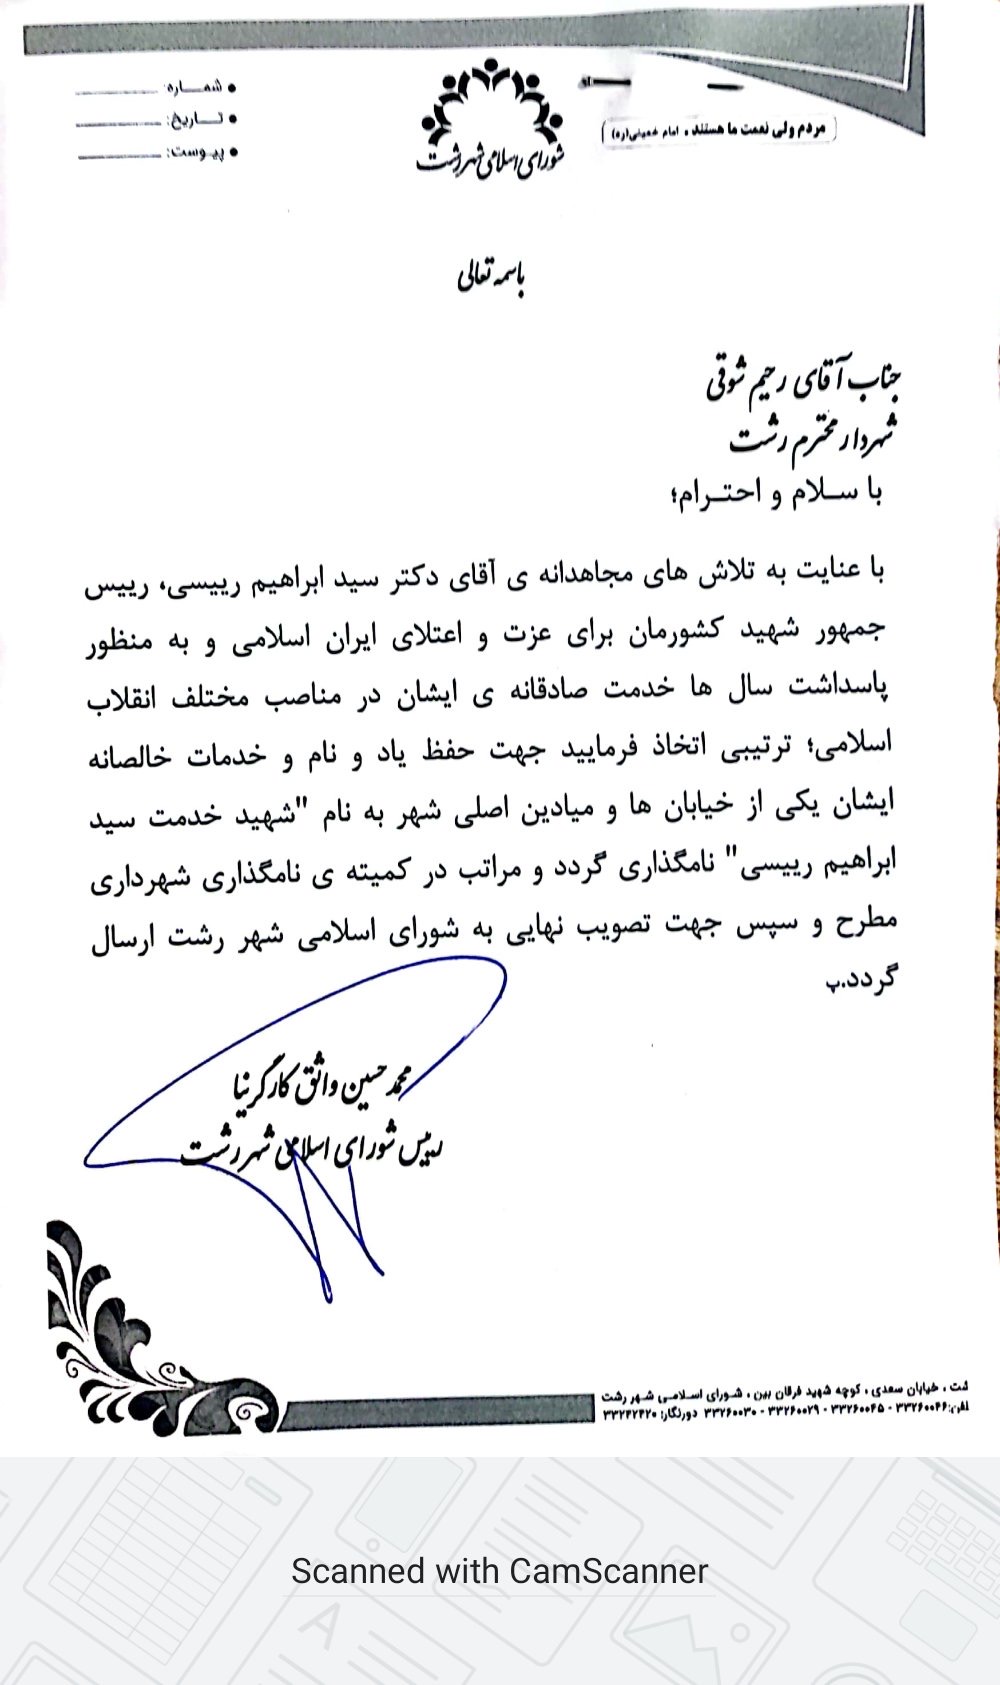 شماره:
تاریخ:
پیوست:
شورای اسلامی شهر رشت
مردم ولی نعمت ما هستند . امام خمینی(ره)
باسمه تعالی
جناب آقای رحیم شوقی
شهردار محترم رشت
با سلام و احترام؛
با عنایت به تلاش های مجاهدانه ی آقای دکتر سید ابراهیم رییسی، رییس
جمهور شهید کشورمان برای عزت و اعتلای ایران اسلامی و به منظور
پاسداشت سال ها خدمت صادقانه ی ایشان در مناصب مختلف انقلاب
اسلامی؛ ترتیبی اتخاذ فرمایید جهت حفظ یاد و نام و خدمات خالصانه
ایشان یکی از خیابان ها و میادین اصلی شهر به نام "شهید خدمت سید
ابراهیم رییسی" نامگذاری گردد و مراتب در کمیته ی نامگذاری شهرداری
مطرح و سپس جهت تصویب نهایی به شورای اسلامی شهر رشت ارسال
گردد.پ
محمد حسین واثق کارگرنیا
رییس شورای اسلامی شهر رشت
خیابان سعدی ، کوچه شهید فرقان بین ، شورای اسلامی شهر رشت
۳۳۲۶۰۰۴۶ - ۳۳۲۶۰۰۴۵ - ۳۳۲۶۰۰۲۹ - ۳۳۲۶۰۰۳۰ دورنگار: ۳۳۲۴۲۴۲۰
Scanned with CamScanner